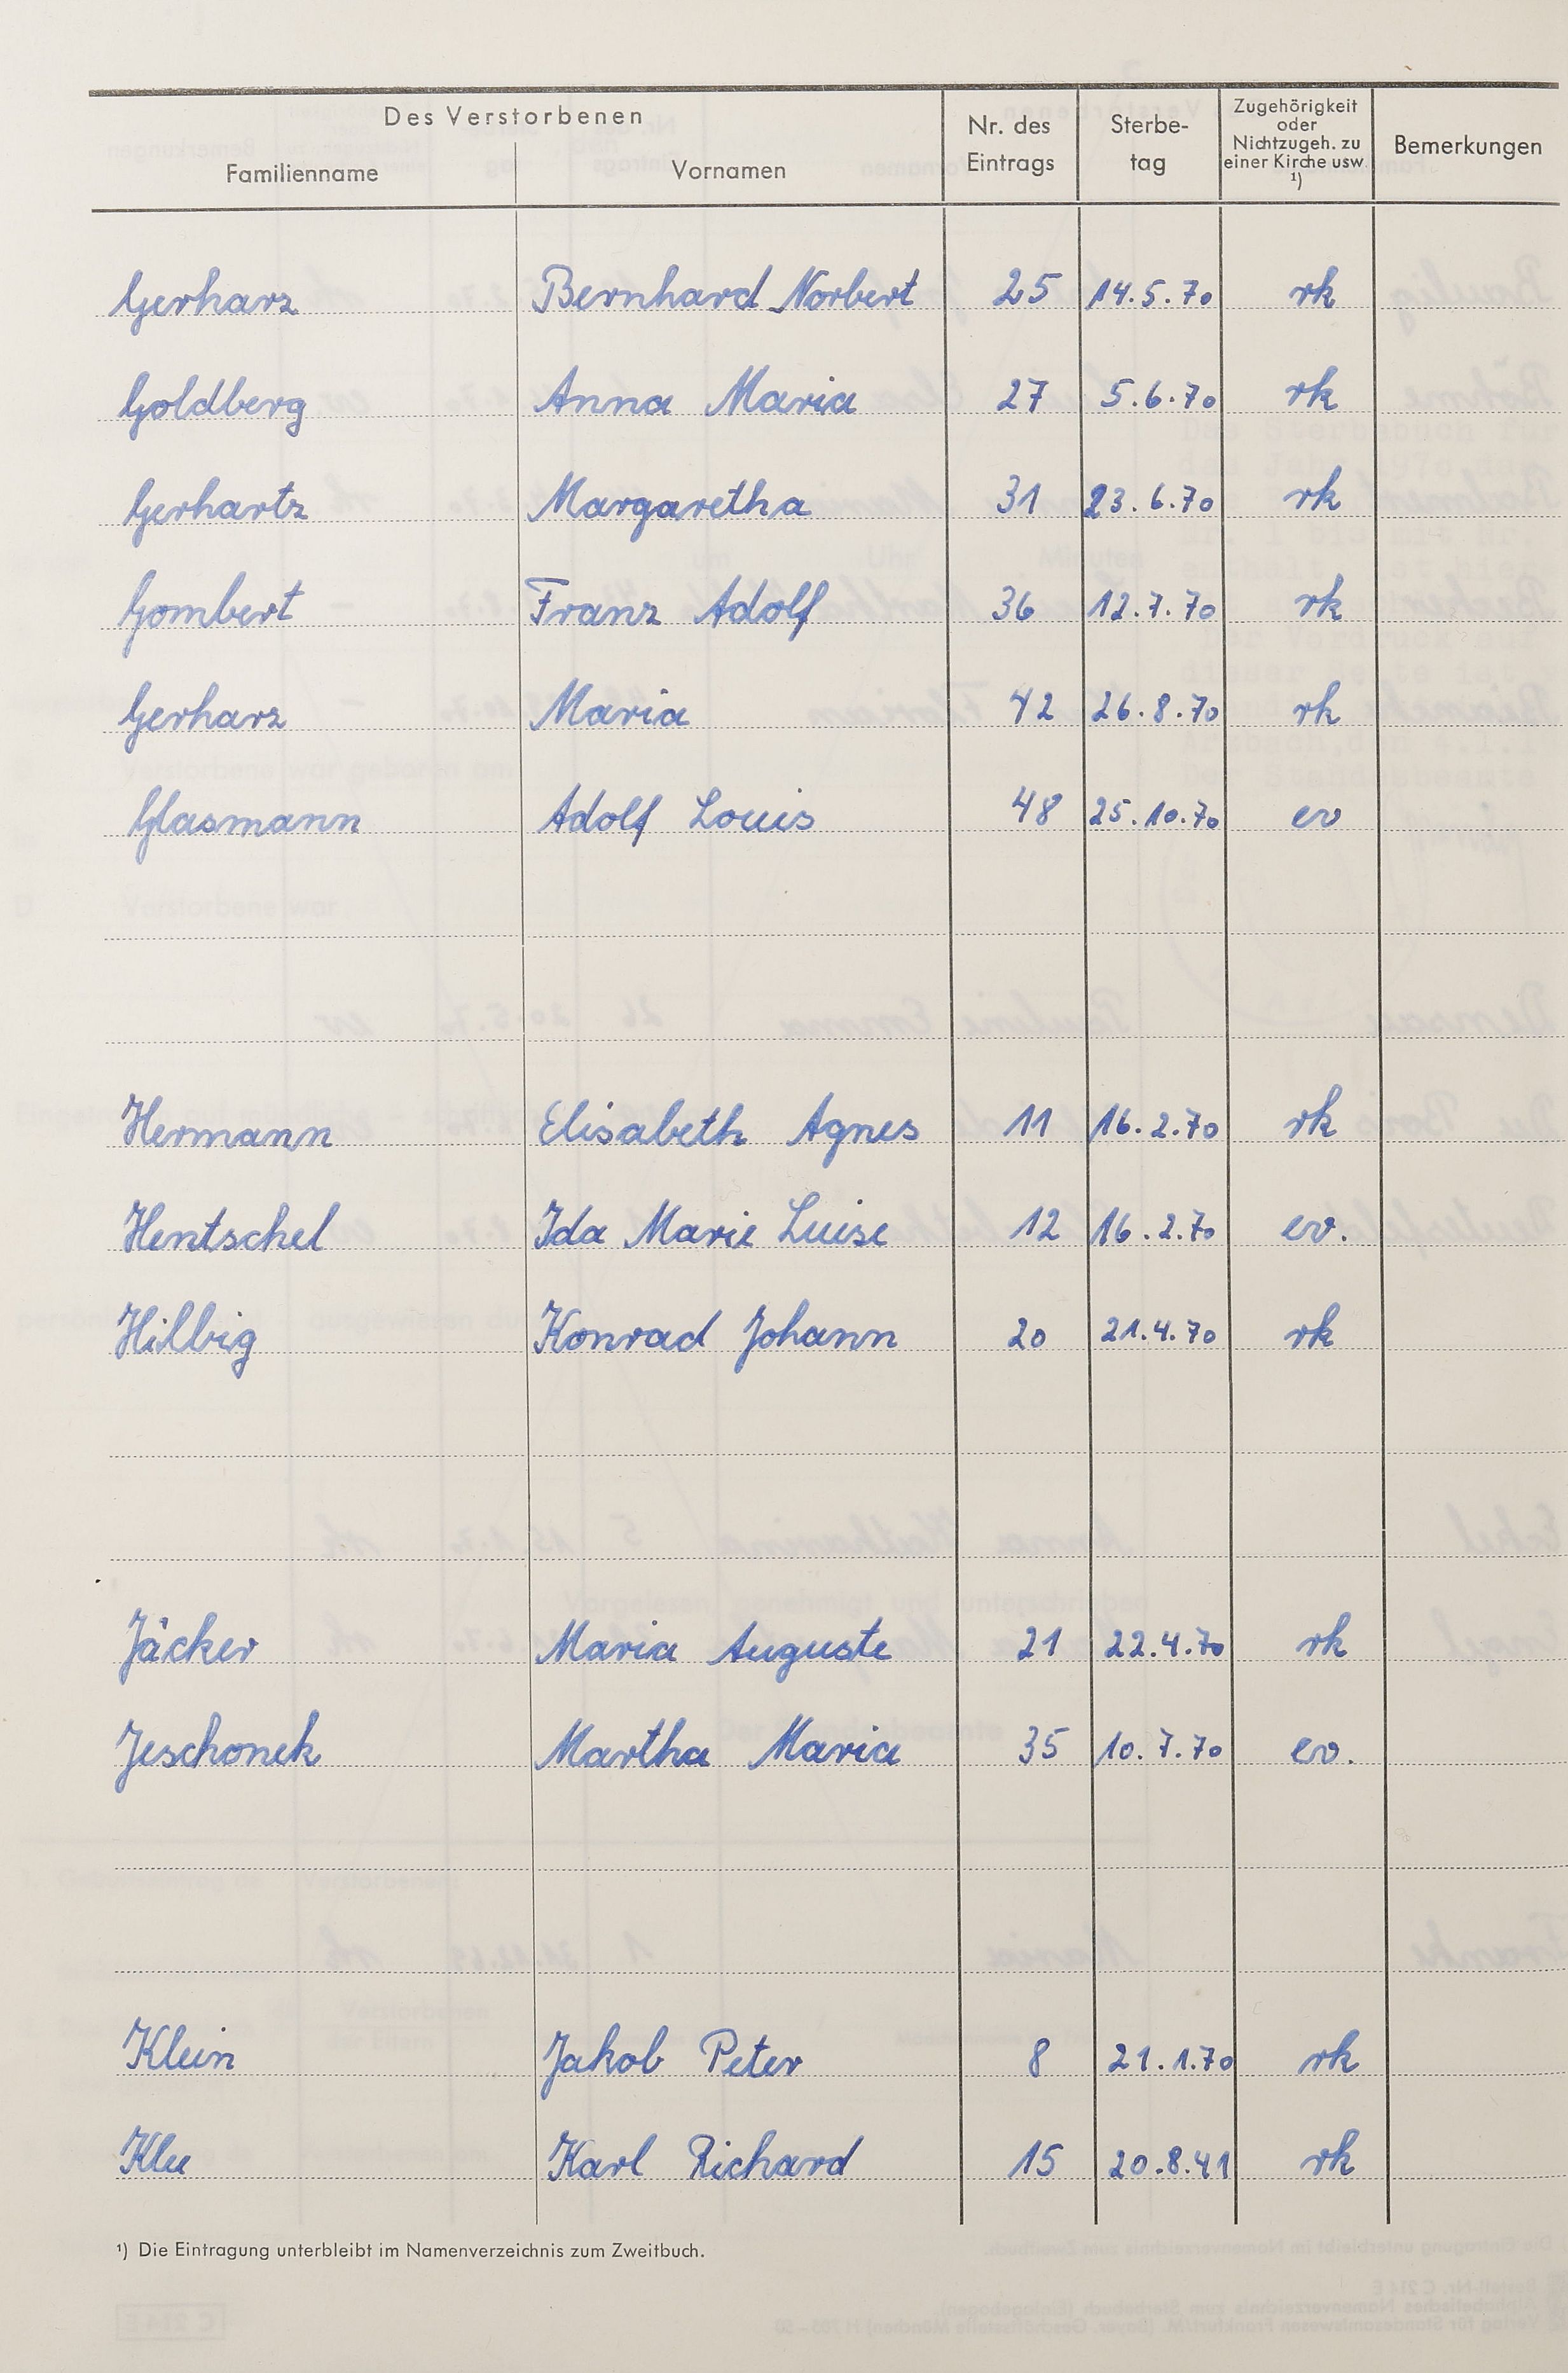 Des Verstorbenen
Familienname Vornamen Nr. des Eintrags Sterbe-tag Zugehörigkeit oder Nichtzugeh. zu einer Kirche usw. ¹) Bemerkungen
Gerharz Bernhard Norbert 25 14.5.70 rk
Goldberg Anna Maria 27 5.6.70 rk
Gerhartz Margaretha 31 23.6.70 rk
Gombert Franz Adolf 36 12.7.70 rk
Gerharz Maria 42 26.8.70 rk
Glasmann Adolf Louis 48 25.10.70 ev
Hermann Elisabeth Agnes 11 16.2.70 rk
Hentschel Ida Marie Luise 12 16.2.70 ev.
Hilbig Konrad Johann 20 21.4.70 rk
Jäcker Maria Auguste 21 22.4.70 rk
Jeschonek Martha Maria 35 10.7.70 ev.
Klein Jakob Peter 8 21.1.70 rk
Klee Karl Richard 15 20.8.41 rk
¹) Die Eintragung unterbleibt im Namenverzeichnis zum Zweitbuch.